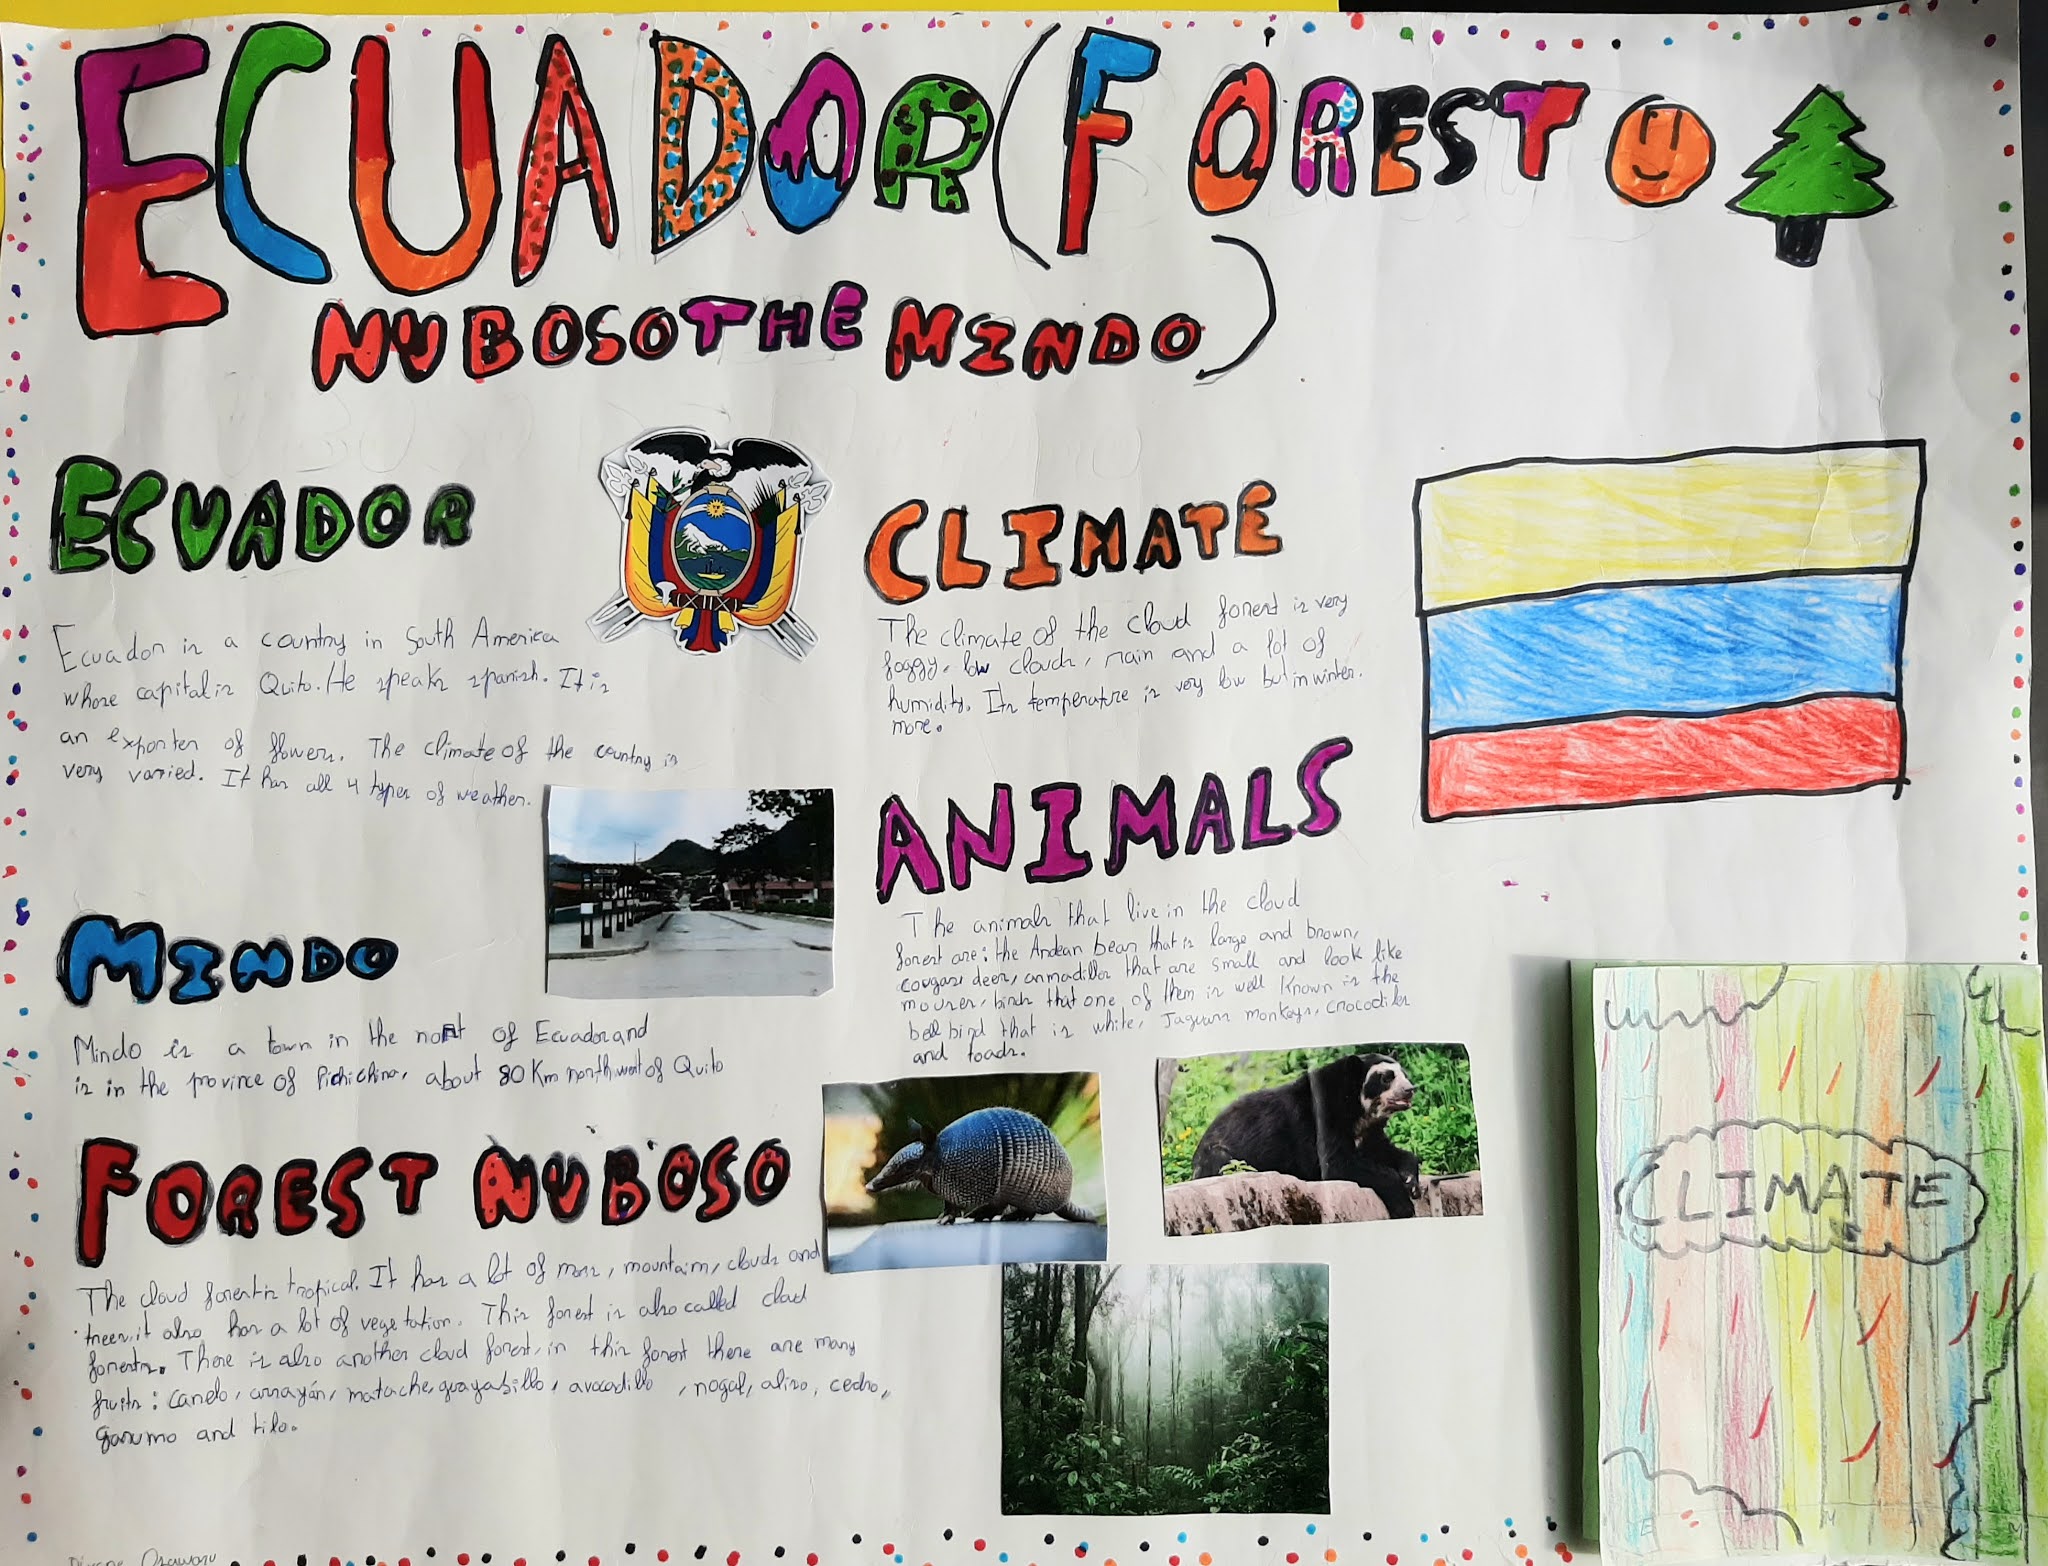 ECUADOR (FOREST
NUBOSO THE MINDO)
ECUADOR
Ecuador is a country in South America
whose capital is Quito. He speaks spanish. It is
an exporter of flowers. The climate of the country is
very varried. It has all 4 types of weather.
MINDO
Mindo is a town in the nort of Ecuador and
is in the province of Pichichina, about 80 Km northwest of Quito
FOREST NUBOSO
The cloud forest is tropical. It has a lot of moss, mountains, clouds and
trees, it also has a lot of vegetation. This forest is also called cloud
forests. There is also another cloud forest, in this forest there are many
fruits: canelo, arrayán, matache, guayabillo, avocadillo, nogal, aliso, cedro,
garumo and tilo.
CLIMATE
The climate of the cloud forest is very
foggy, low clouds, rain and a lot of
humidity. Its temperature is very low but in winter.
more.
ANIMALS
The animals that live in the cloud
forest are: the Andean bear that is large and brown,
cougars, deers, armadillos that are small and look like
mouses, birds that one of them is well Known is the
bell bird that is white, Jaguars monkeys, crocodiles
and toads.
CLIMATE